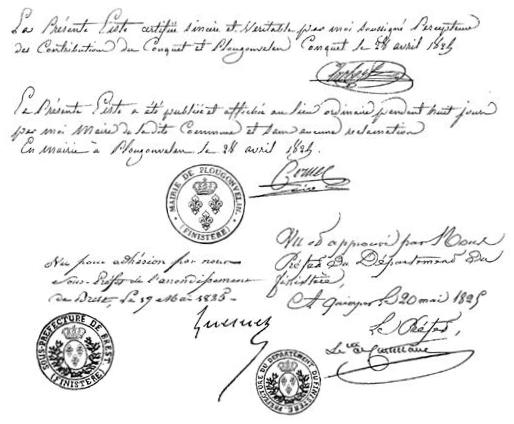 La Présente Liste certifiée sincère et Véritable par moi soussigné Percepteur
des Contributions du Conquet et Plougonvelen Conquet le 28 avril 1825
La Présente Liste a été publiée et affichée au lieu ordinaire pendant huit jours
par moi Maire de ladite Commune et sans aucune reclamation
En mairie à Plougonvelen le 28 avril 1825.
MAIRIE DE PLOUGONVELIN.
(FINISTERE)
Vu pour adhésion par nous
sous-Préfet de l'arrondissement
de Brest, le 19 Mai 1825
Vu et approuvé par Nous
Préfet Du Département du
finistère,
A Quimper le 20 mai 1825
Le Préfet,
SOUS-PREFECTURE DE BREST
(FINISTERE)
PREFECTURE DU DEPARTEMENT DU FINISTERE